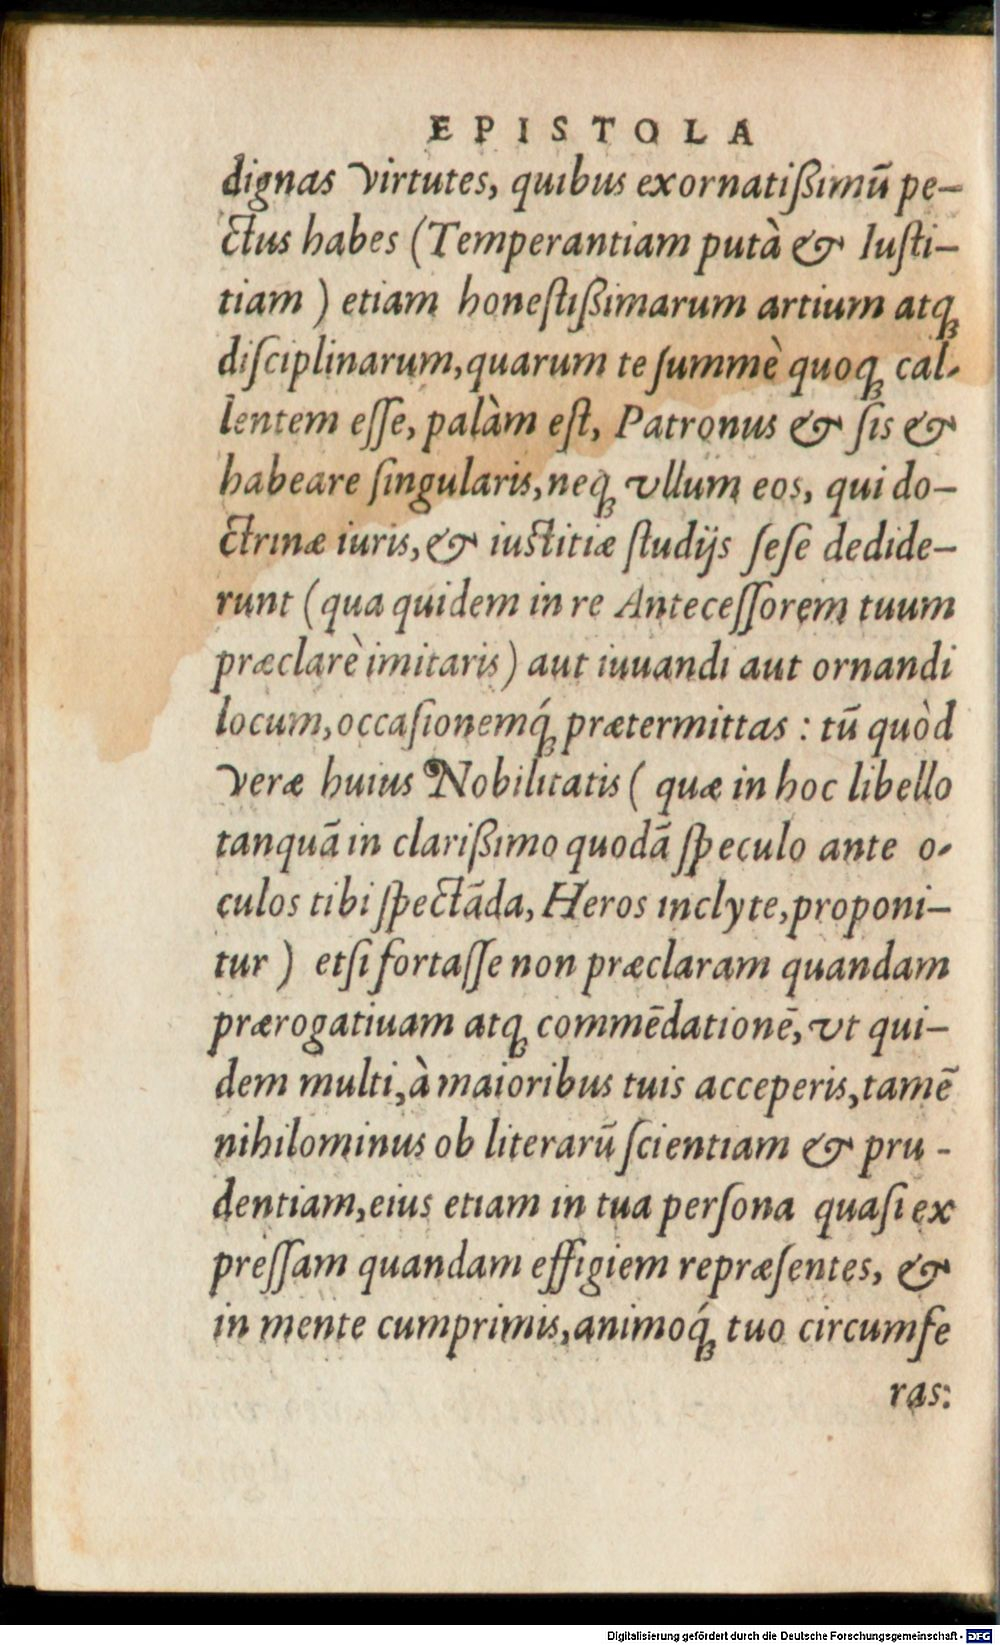 EPISTOLA
dignas virtutes, quibus exornatißimū pe-
ctus habes (Temperantiam putà & Iusti-
tiam) etiam honestißimarum artium atq;
disciplinarum, quarum te summè quoq; cal-
lentem esse, palàm est, Patronus & sis &
habeare singularis, neq; vllum eos, qui do-
ctrinæ iuris, & iustitiæ studijs sese dedide-
runt (qua quidem in re Antecessorem tuum
præclarè imitaris) aut iuuandi aut ornandi
locum, occasionemq́; prætermittas : tū quòd
veræ huius Nobilitatis (quæ in hoc libello
tanquā in clarißimo quodā speculo ante o-
culos tibi spectāda, Heros inclyte, proponi-
tur) etsi fortasse non præclaram quandam
prærogatiuam atq; commēdationē, vt qui-
dem multi, à maioribus tuis acceperis, tamē
nihilominus ob literarū scientiam & pru-
dentiam, eius etiam in tua persona quasi ex
pressam quandam effigiem repræsentes, &
in mente cumprimis, animoq́; tuo circumfe
ras:
Digitalisierung gefördert durch die Deutsche Forschungsgemeinschaft - DFG